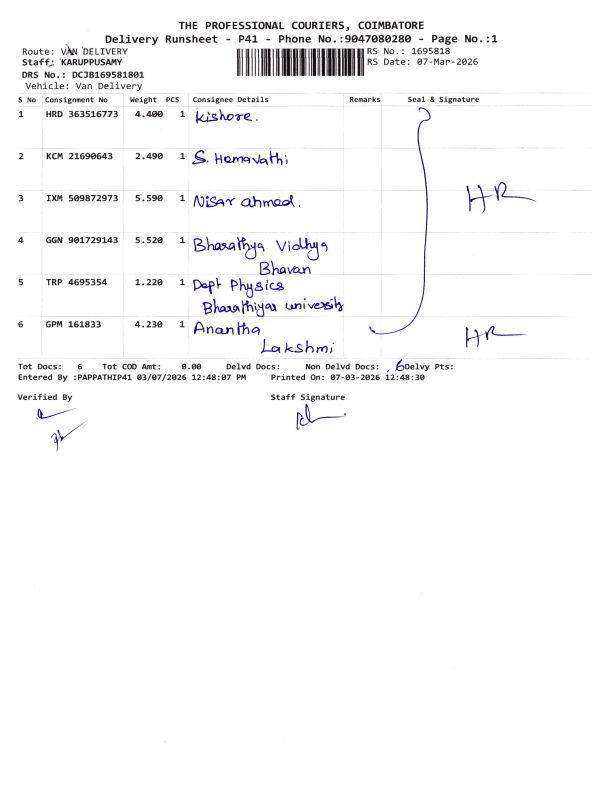 THE PROFESSIONAL COURIERS, COIMBATORE
Delivery Runsheet - P41 - Phone No.:9047080280 - Page No.:1
Route: VAN DELIVERY
RS No.: 1695818
Staff: KARUPPUSAMY
RS Date: 07-Mar-2026
DRS No.: DCJB169581801
Vehicle: Van Delivery
S No Consignment No Weight PCS Consignee Details Remarks Seal & Signature
1 HRD 363516773 4.400 1 Kishore.
2 KCM 21690643 2.490 1 S. Hemavathi
3 IXM 509872973 5.590 1 Nisar ahmed.
HR
4 GGN 901729143 5.520 1 Bharathya Vidhya
Bhavan
5 TRP 4695354 1.220 1 Dept Physics
Bharathiyar university
6 GPM 161833 4.230 1 Anantha
Lakshmi
HR
Tot Docs: 6 Tot COD Amt: 0.00 Delvd Docs: Non Delvd Docs: 6 Delvy Pts:
Entered By :PAPPATHIP41 03/07/2026 12:48:07 PM Printed On: 07-03-2026 12:48:30
Verified By Staff Signature